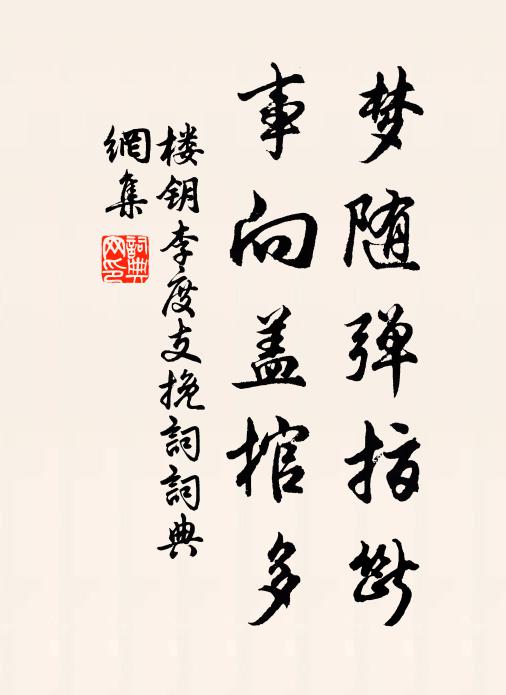 梦随弹指断
事向盖棺多
楼钥李度支挽词词典
網集
詞典網印